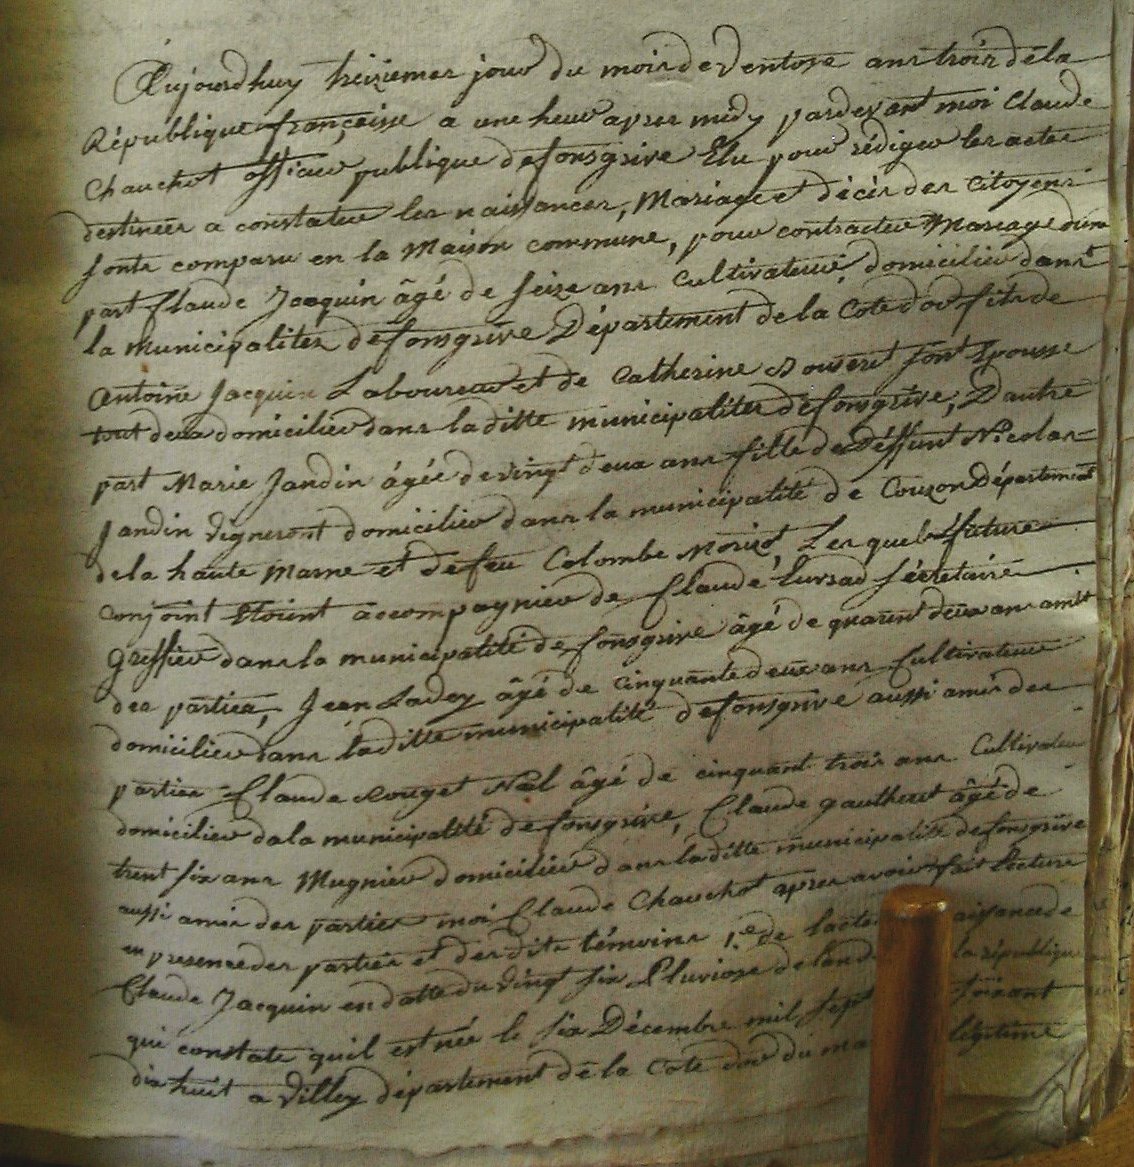 Aujourdhuy treiziemes jour du mois de Ventose ans trois de la
République françaisse a une heur apres midy pardevant moi Claude
Chauchot officier publique de fonsgrive Elu pour rédiger les actes
destinées a constater les naissances, Mariage et décès des Citoyens
sonts comparu en la Maison commune, pour contracter Mariage d'une
part Claude Jacquin âgé de seize ans Cultivateur, domicilier dans
la municipalites de fonsgrive Département de la Cote d'or fils de
Antoine Jacquin Laboureur et de Catherine son Epousse
tout deux domicilier dans laditte municipalites de fonsgrive, D'autre
part Marie Jandin âgée de vingt deux ans fille de Déffunt Nicolas
Jandin vigneront domicilier dans la municipalité de Couzon Département
de la haute Marne et de feu Colombe Morizot, Les quels future
conjoint étoint accompagnier de Claude sécretaire
Greffier dans la municipalité de fonsgrive âgé de quarent deux ans amis
des parties, Jean Ladey âgé de cinquante deux ans Cultivateur
domicilier dans laditte municipalité de fonsgrive aussi amis des
parties Claude Rouget Nael âgé de cinquant trois ans Cultivateur
domicilier da la municipalité de fonsgrive, Claude gautheret âgé de
trent six ans Mugnier domicilier dans laditte municipalité de fonsgrive
aussi amis des parties moi Claude Chauchot apres avoir fait Lecture
en presence des parties et desdits témoins 1.e de lacte aissance de
Claude Jacquin en datte du vingt six Pluviose de lan d la république
qui constate quil est née le six Décembre mil sept soixant
dix huit a Villey département de la Cote dor du ma légitime